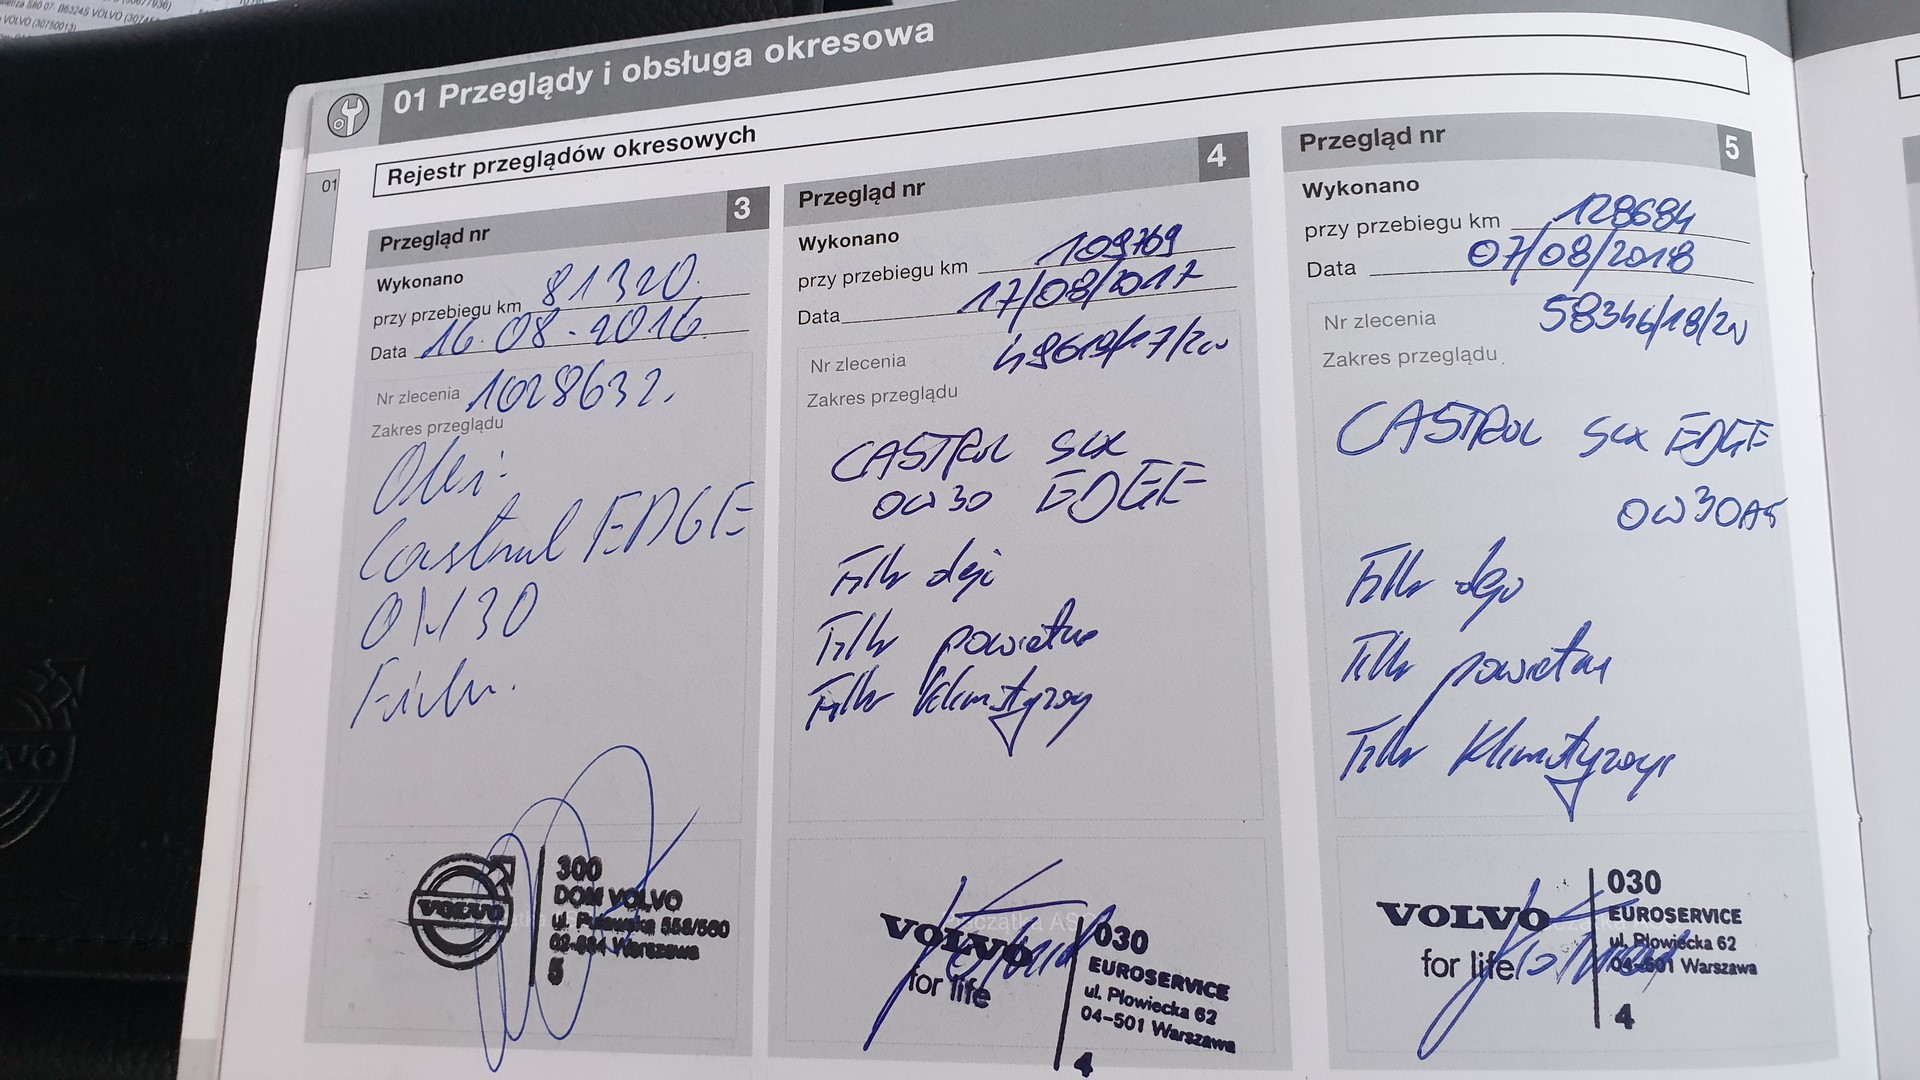 VOLVO (30750013)
01 Przeglądy i obsługa okresowa
Rejestr przeglądów okresowych
01
Przegląd nr 3
Wykonano
przy przebiegu km 81320.
Data 16.08-2016.
Nr zlecenia 1028632.
Zakres przeglądu
Olej:
Castrol EDGE
0W30
300
DOM VOLVO
VOLVO
02-884 Warszawa
5
Przegląd nr 4
Wykonano
przy przebiegu km 109769
Data 17/08/2017
Nr zlecenia
Zakres przeglądu
CASTROL SLX
0W30 EDGE
Filtr oleju
Filtr powietrza
Filtr Klimatyzacji
VOLVO
for life
030
EUROSERVICE
ul. Płowiecka 62
04-501 Warszawa
4
Przegląd nr 5
Wykonano
przy przebiegu km 128684
Data 07/08/2018
Nr zlecenia 58346/18/ZW
Zakres przeglądu
CASTROL SLX EDGE
0W30A5
Filtr oleju
Filtr powietrza
Filtr Klimatyzacji
VOLVO
for life
030
EUROSERVICE
ul. Płowiecka 62
04-501 Warszawa
4